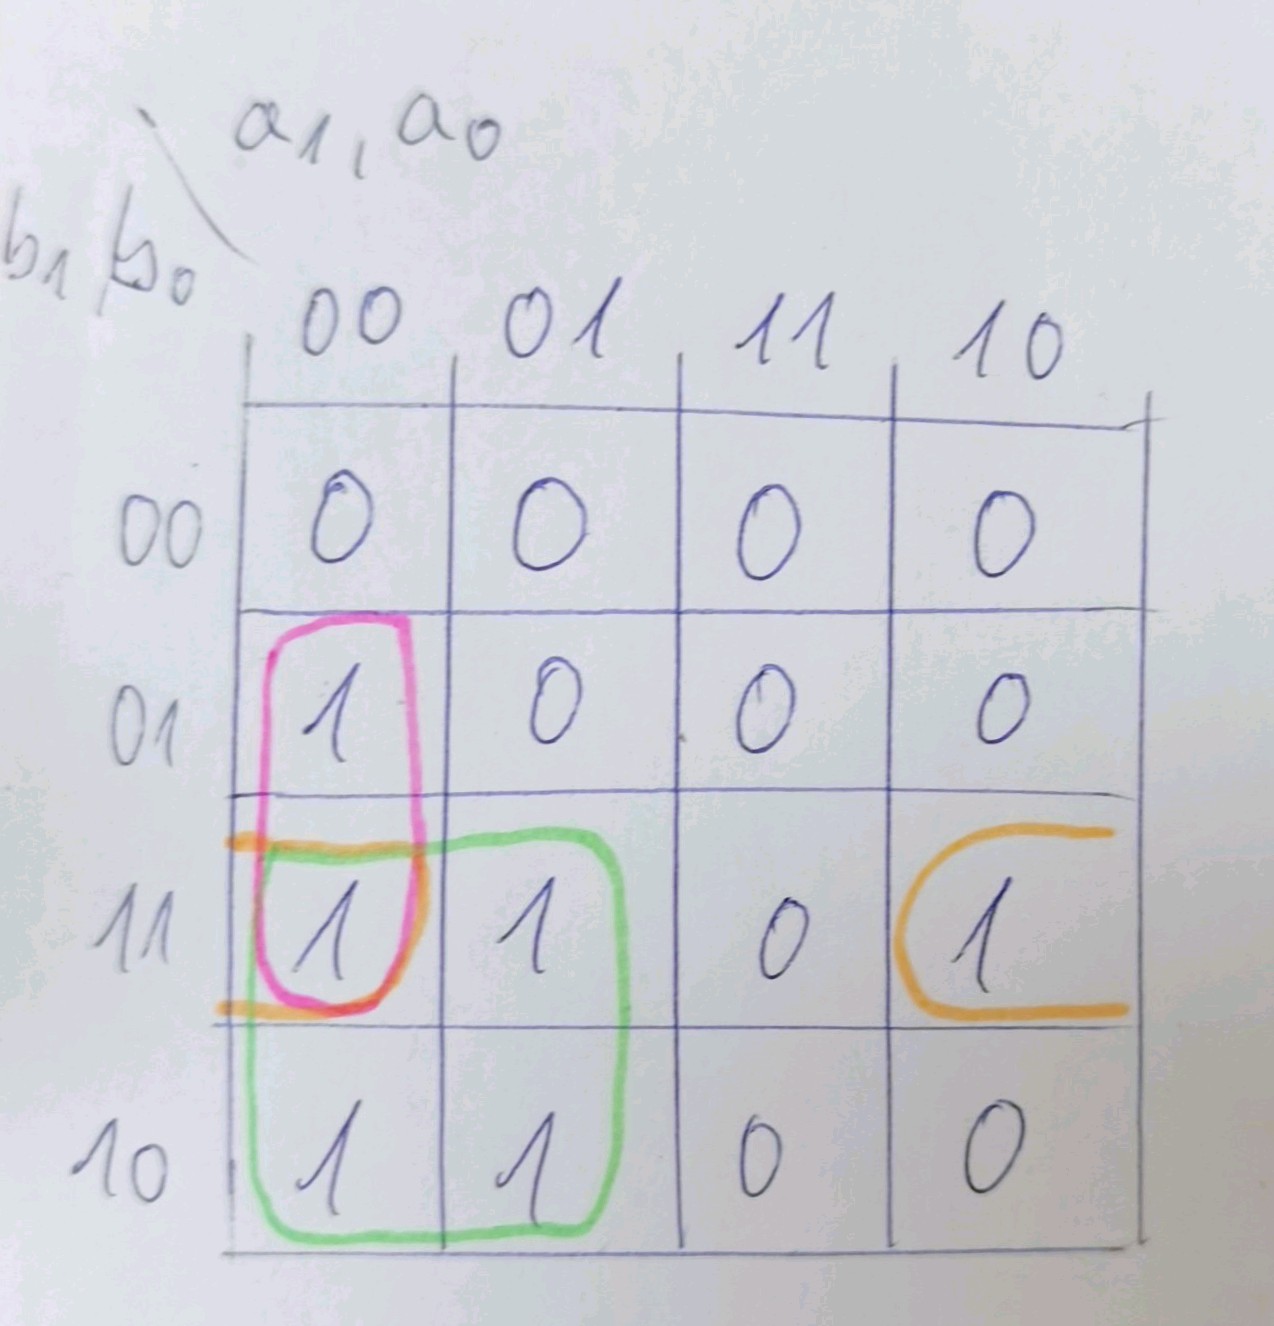 a1, a0
b1 b0
00 01 11 10
00 0 0 0 0
01 1 0 0 0
11 1 1 0 1
10 1 1 0 0